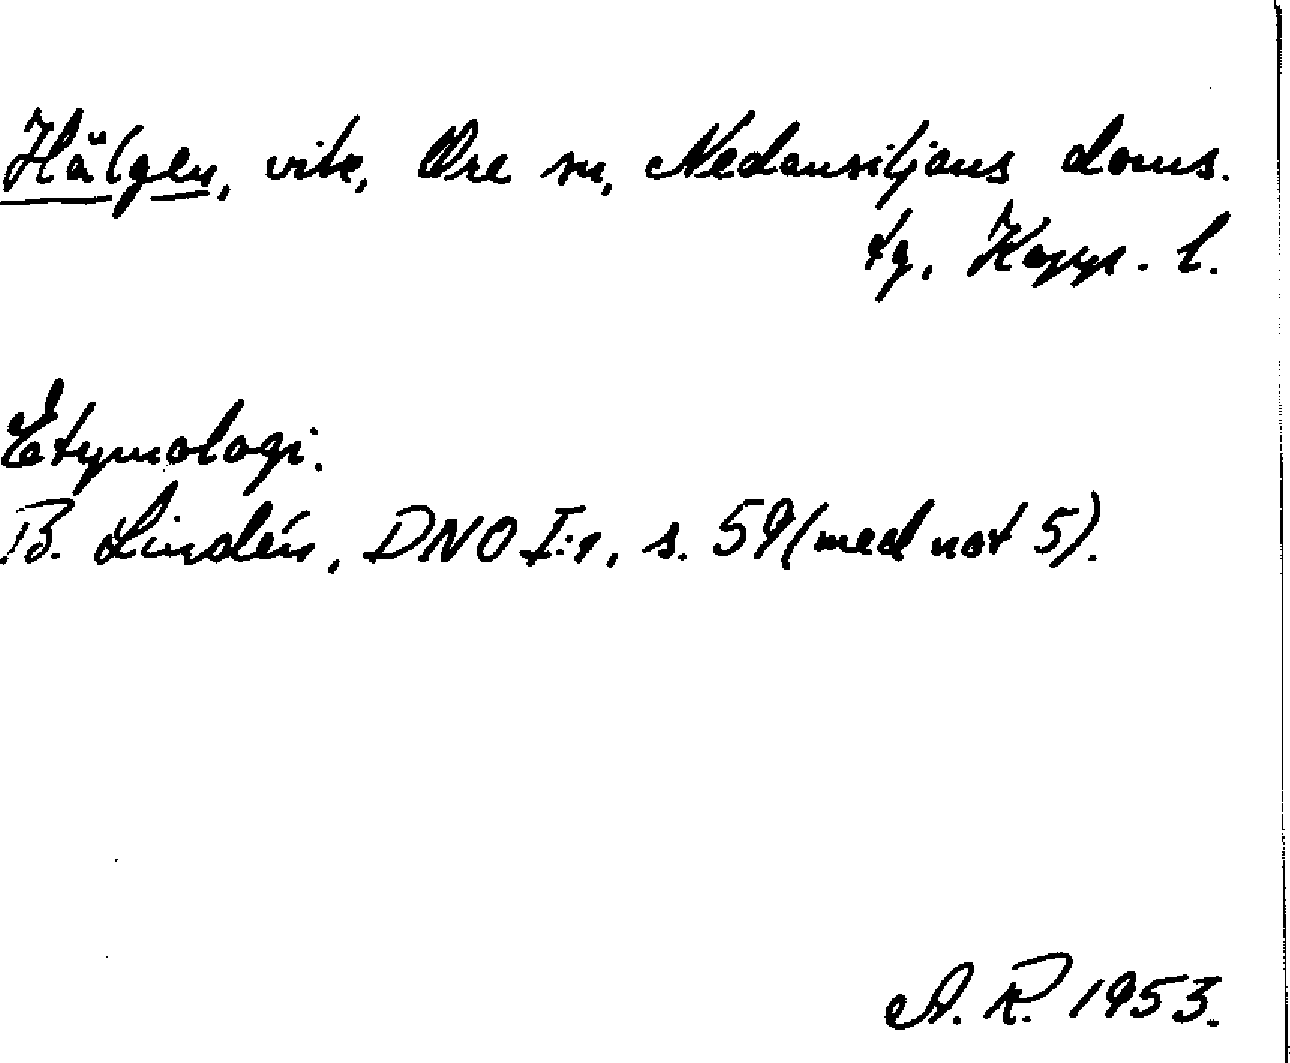 Hälgen, vik, Ore sn, Nedansiljans doms.
tg, Kopp. l.
Etymologi.
B. Lindén, DNO I:1, s. 59 (med not 5).
A. R. 1953.